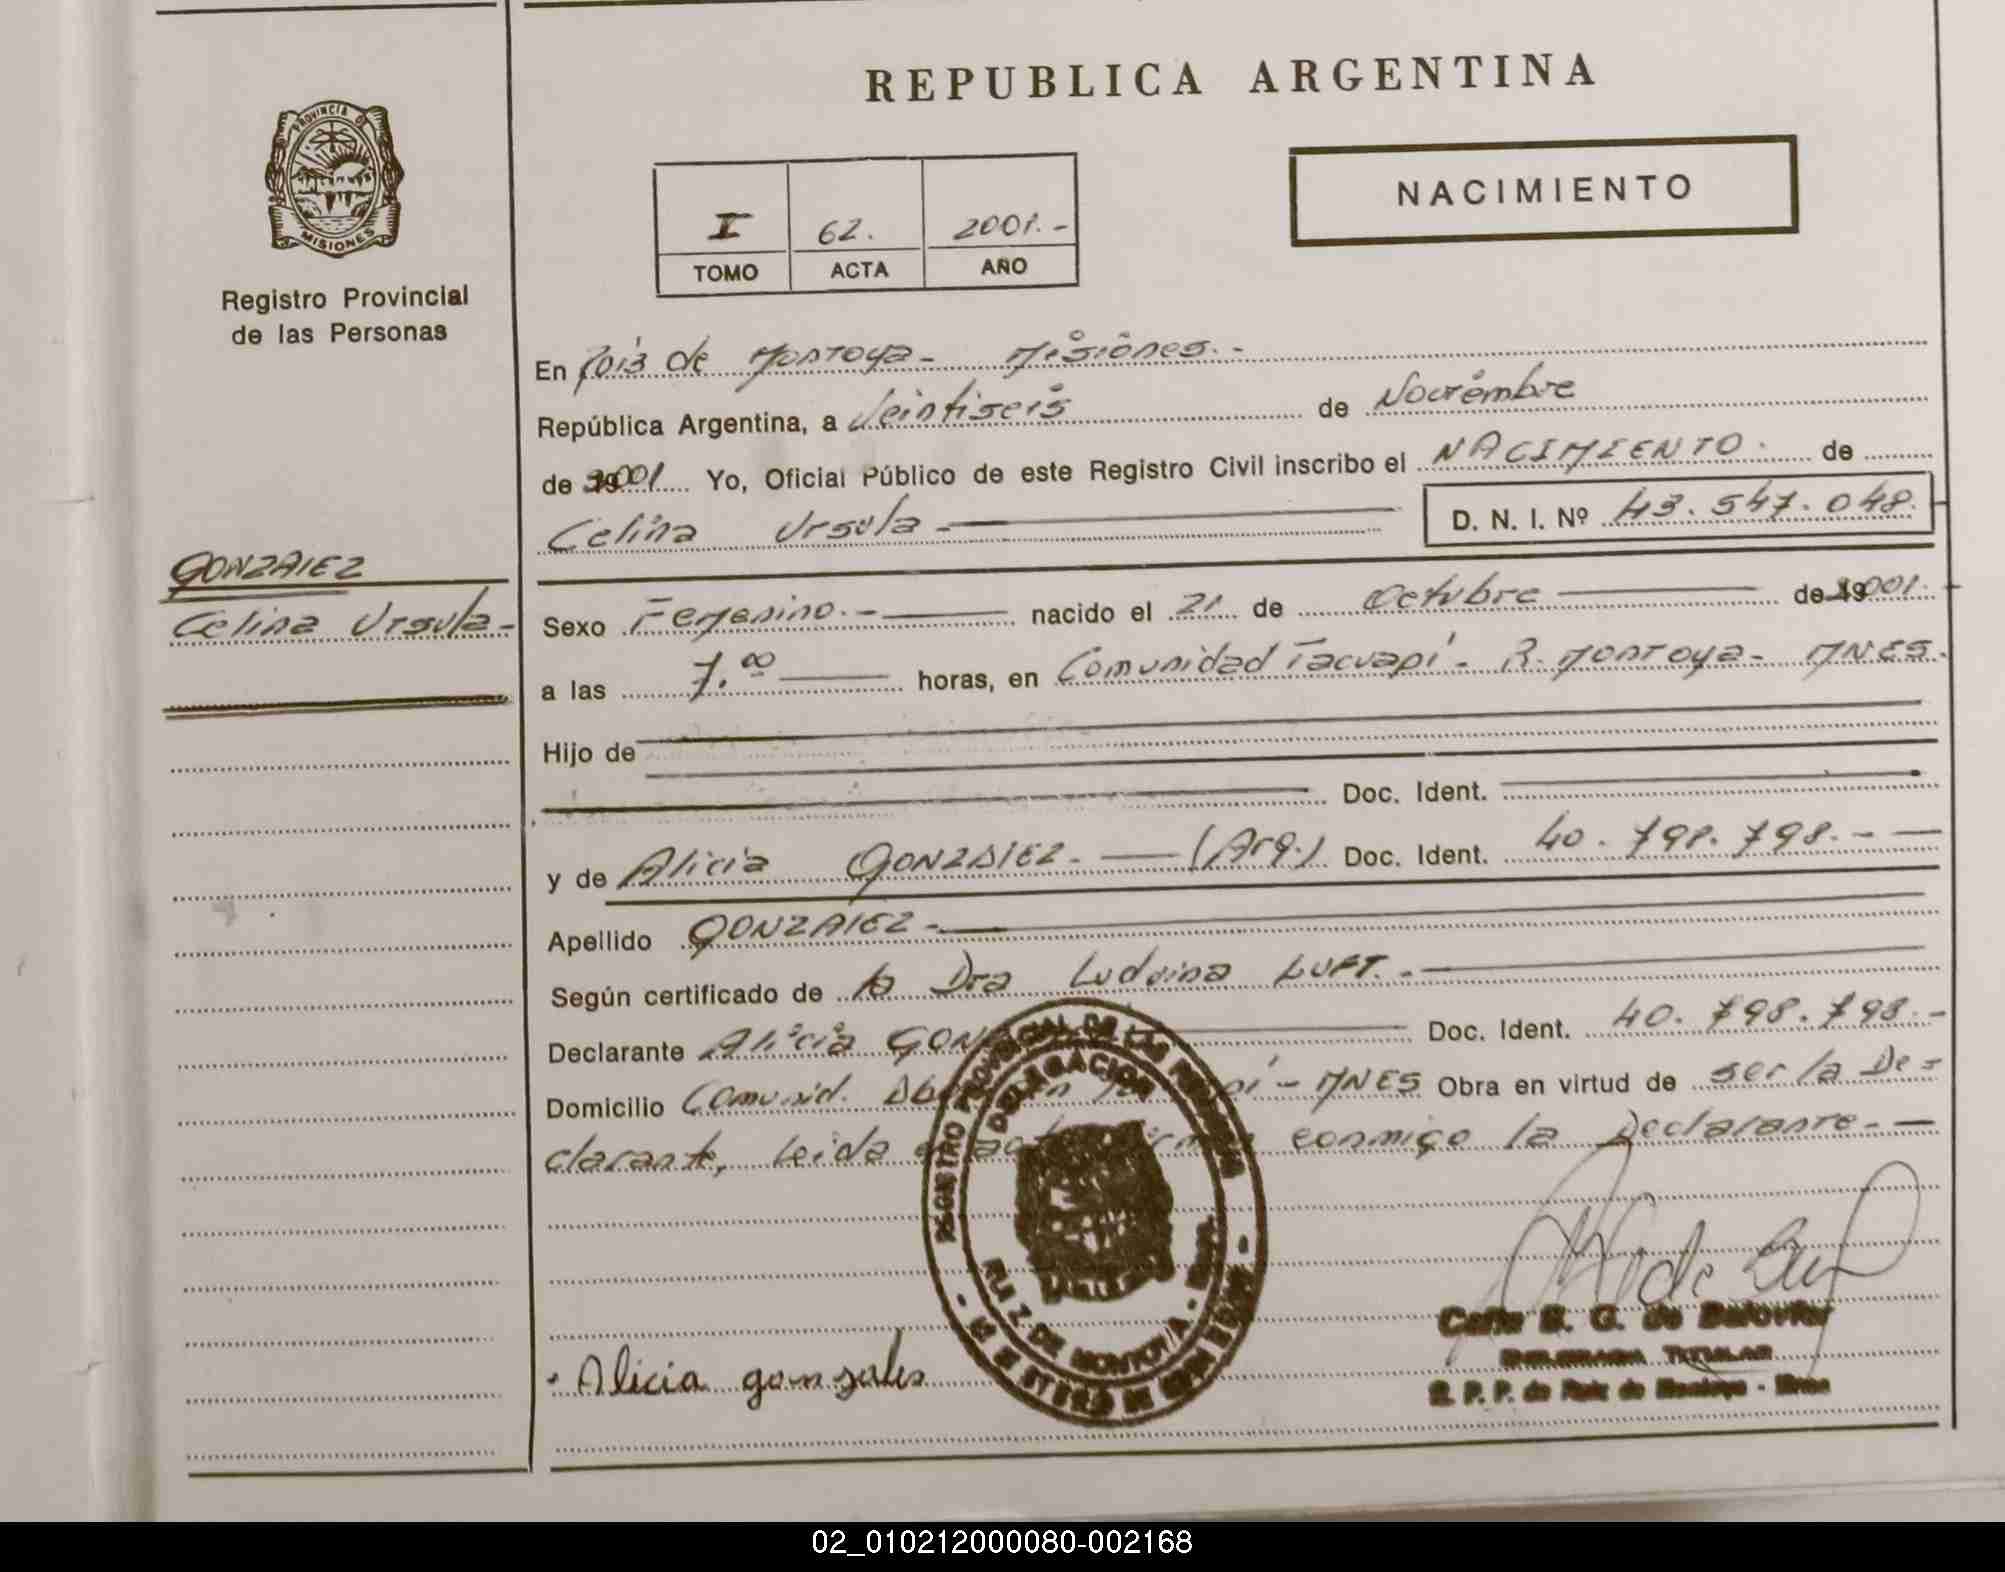 REPUBLICA ARGENTINA
PROVINCIA DE
MISIONES
Registro Provincial
de las Personas
NACIMIENTO
I 62. 2001.-
TOMO ACTA AÑO
En Ruiz de Montoya - Misiones.-
República Argentina, a Veintiseis de Noviembre
de 2001 Yo, Oficial Público de este Registro Civil inscribo el NACIMIENTO. de
Celina Ursula - D. N. I. Nº 43.547.048.
GONZALEZ
Celina Ursula -
Sexo Femenino.- nacido el 21 de Octubre de 2001.
a las 7.00 horas, en Comunidad Tacuapí - R. Montoya - MNES.
Hijo de
Doc. Ident.
y de Alicia GONZALEZ. - (Arg.) Doc. Ident. 40.798.798.-
Apellido GONZALEZ -
Según certificado de la Dra Ludvina LUFT.-
Declarante Alicia Doc. Ident. 40.798.798.-
Domicilio Comunid. - MNES Obra en virtud de ser la De=
clarante, Leida conmigo la Declarante.-
REGISTRO PROVINCIAL DE LAS PERSONAS
DELEGACION
RUIZ DE MONTOYA
Alicia gonzales
DELEGADA TITULAR
R. P. P. de Ruiz de Montoya - Mnes
02_010212000080-002168